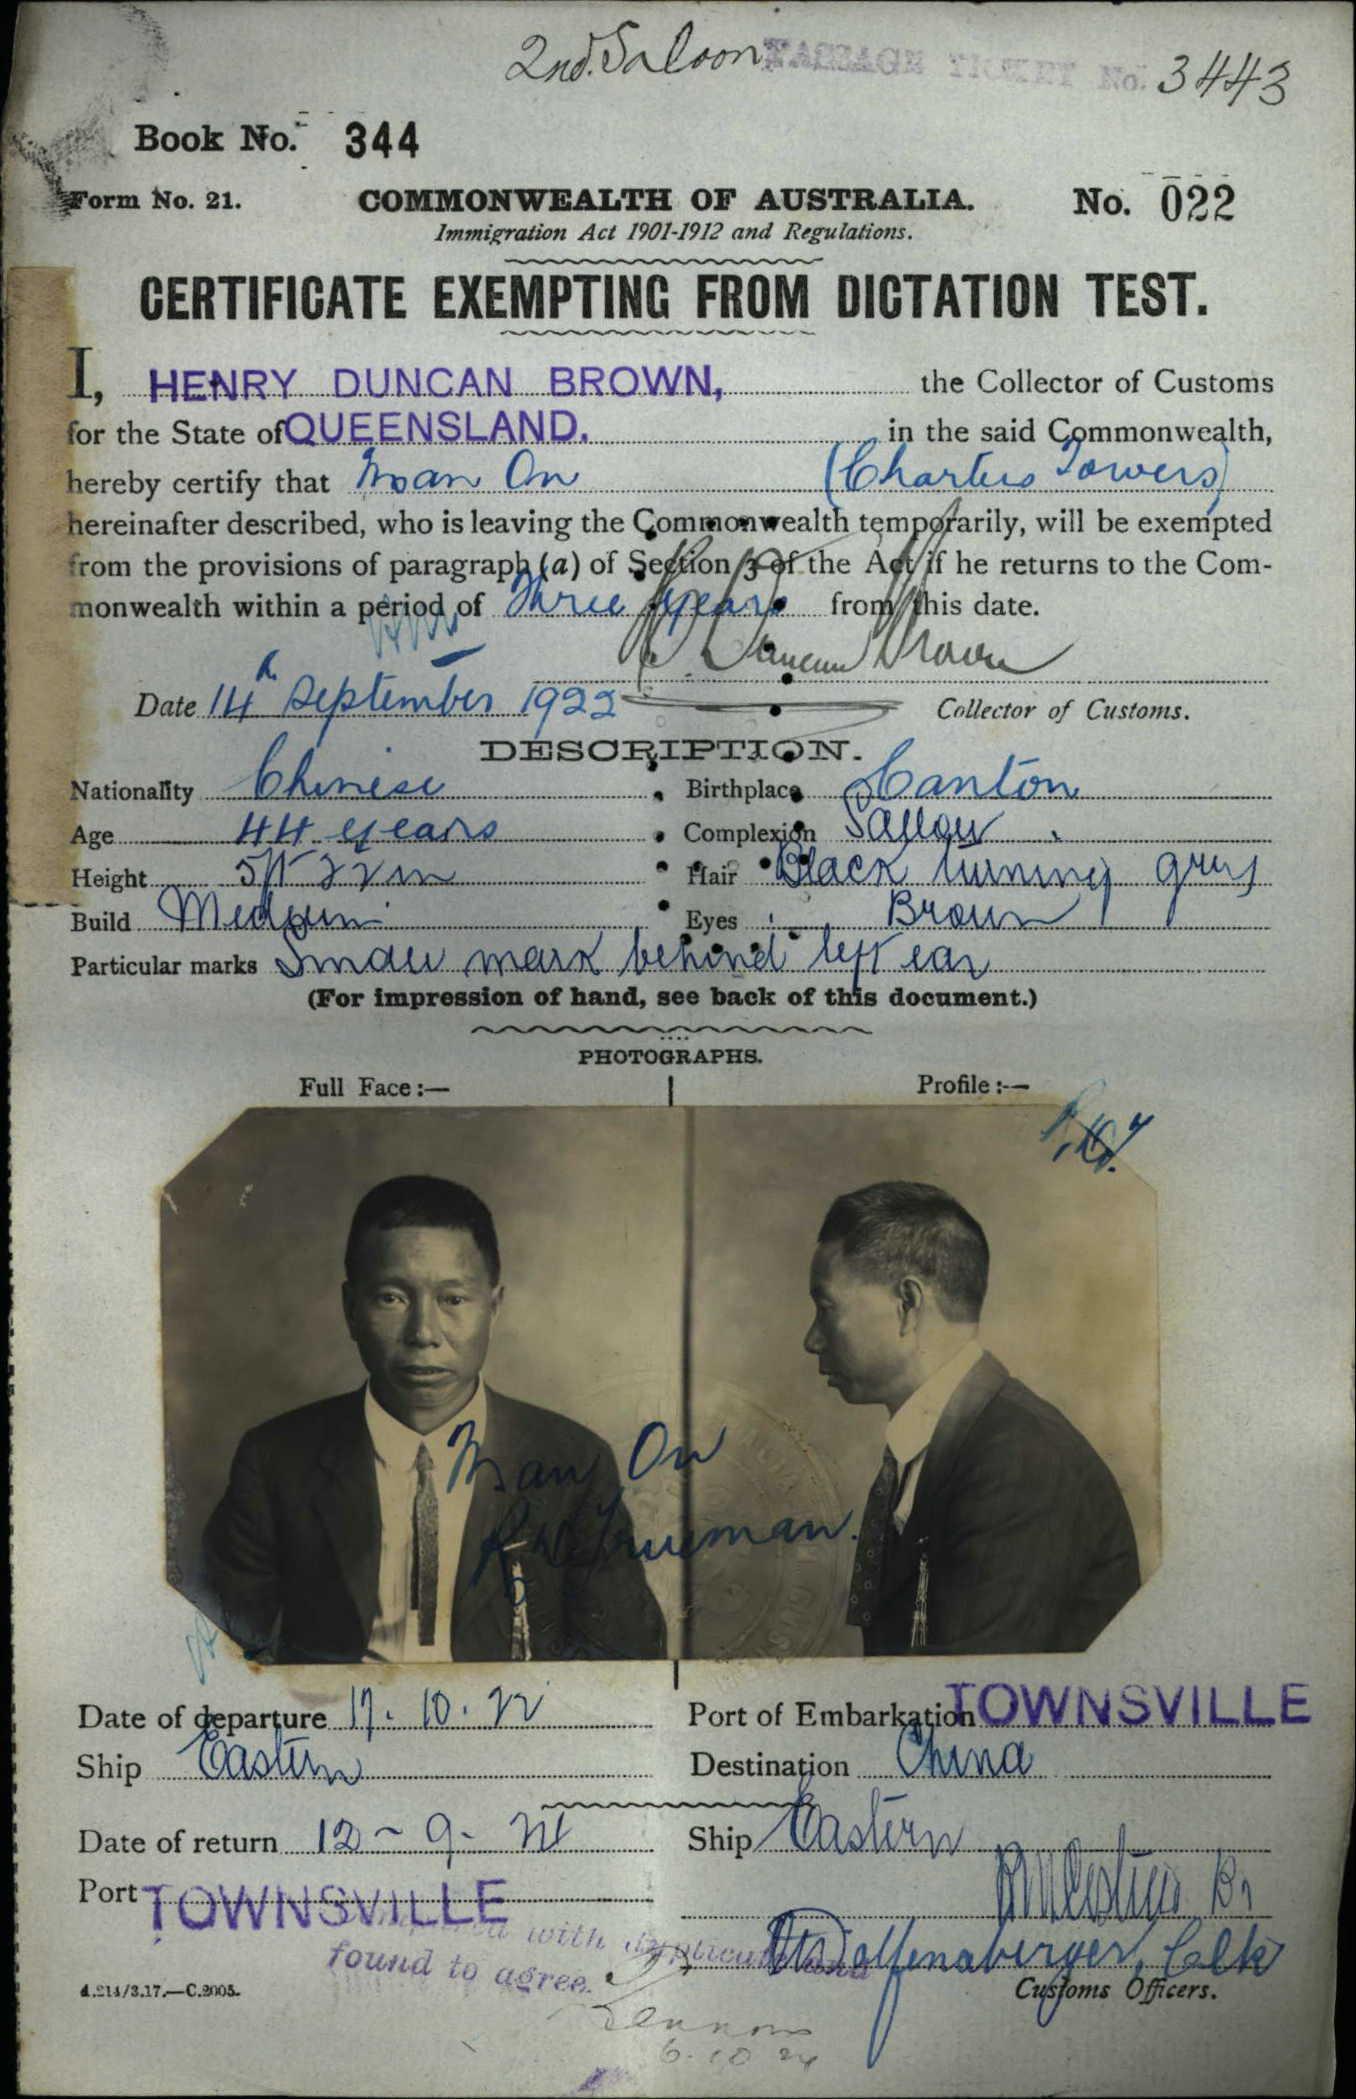 2nd. Saloon PASSAGE TICKET No. 3443
Book No. 344
Form No. 21. COMMONWEALTH OF AUSTRALIA. No. 022
Immigration Act 1901-1912 and Regulations.
CERTIFICATE EXEMPTING FROM DICTATION TEST.
I, HENRY DUNCAN BROWN, the Collector of Customs
for the State of QUEENSLAND. in the said Commonwealth,
hereby certify that Man On (Charters Towers)
hereinafter described, who is leaving the Commonwealth temporarily, will be exempted
from the provisions of paragraph (a) of Section 3 of the Act if he returns to the Com-
monwealth within a period of Three years from this date.
H. Duncan Brown
Date 14th September 1922 Collector of Customs.
DESCRIPTION.
Nationality Chinese Birthplace Canton
Age 44 years Complexion Sallow
Height 5ft 2½in Hair Black turning grey
Build Medium Eyes Brown
Particular marks Small mark behind left ear
(For impression of hand, see back of this document.)
PHOTOGRAPHS.
Full Face:— Profile:—
Man On
Trueman.
Date of departure 17. 10. 22 Port of Embarkation TOWNSVILLE
Ship Eastern Destination China
Date of return 12 - 9 - 24 Ship Eastern
Port TOWNSVILLE
with duplicate and
found to agree.
Clk
d.214/3.17.—C.2005. Customs Officers.
Lennons
6.10.24